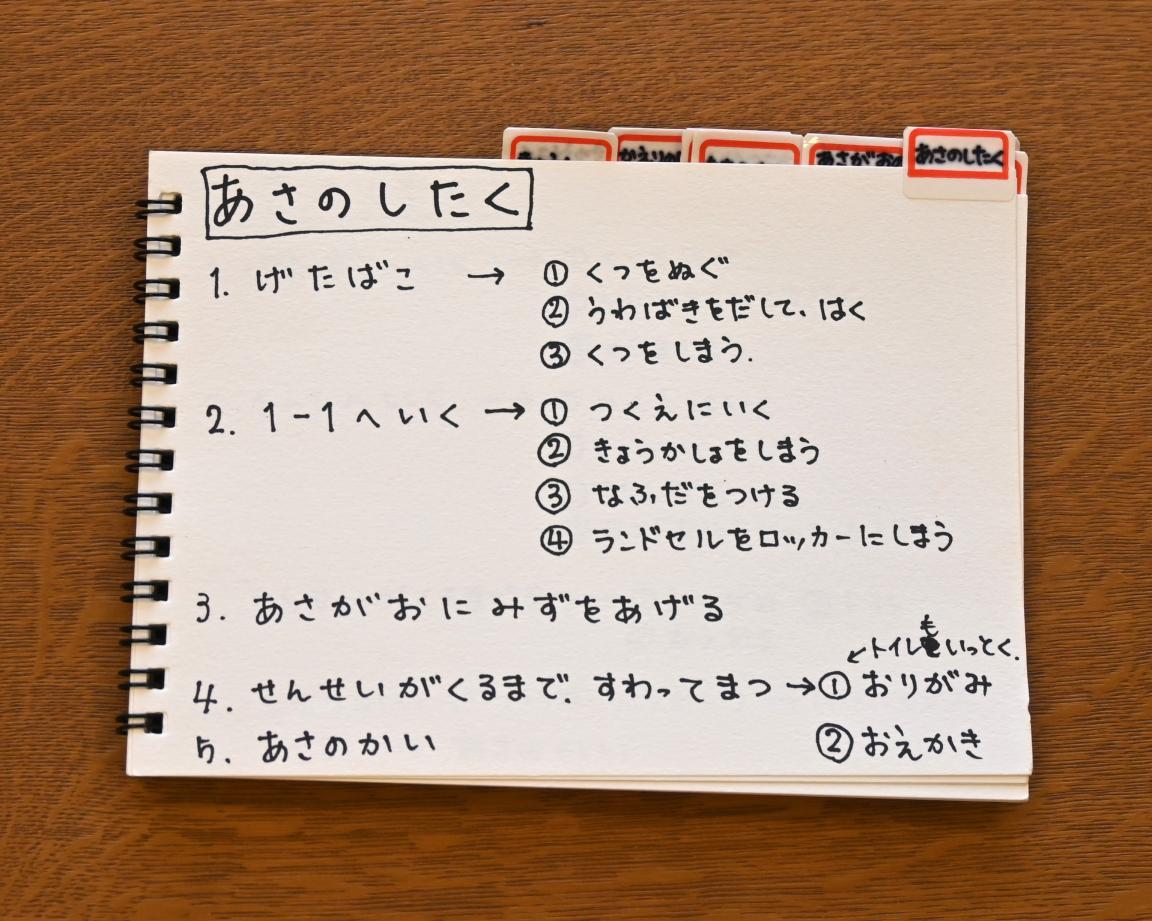 かえりの
あさがおの
あさのしたく
あさのしたく
1. げたばこ → ① くつをぬぐ
② うわばきをだして、はく
③ くつをしまう.
2. 1-1へいく → ① つくえにいく
② きょうかしょをしまう
③ なふだをつける
④ ランドセルをロッカーにしまう
3. あさがおにみずをあげる
トイレもいっとく.
4. せんせいがくるまで、すわってまつ → ① おりがみ
5. あさのかい ② おえかき